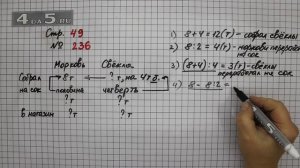 4 РУ
5.SU
Стр. 49
№ 236
Морковь Свёкла
Собрал 8 т ← ? т, на 4 т б.
на сок половина четверть
? т ? т
В магазин ? т ? т
1) 8+4=12(т) - собрал свёклы
2) 8:2=4(т) - моркови переработал
на сок
3) (8+4):4=3(т) - свёклы
переработал на сок
4) 8-8:2=